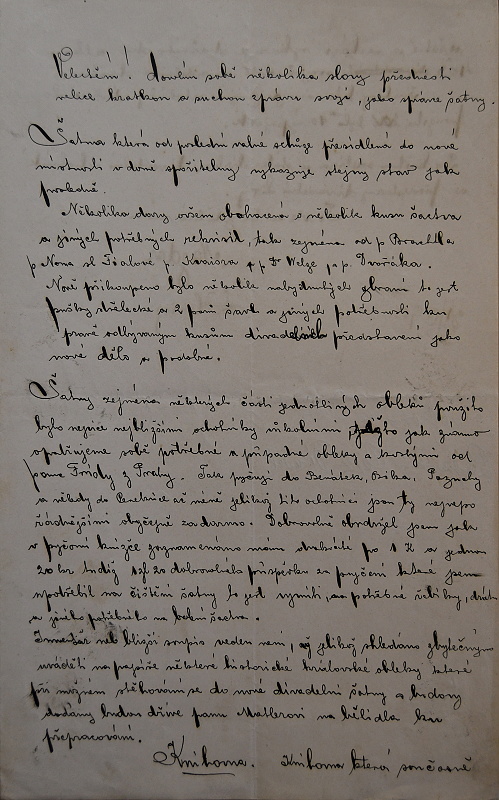 Velectění! Dovolím sobě několika slovy přednésti
velice krátkou a suchou zprávu svoji, jako správce šatny.
Šatna která od poslední valné schůze přesídlená do nové
místnosti v domě spořitelny vykazuje stejný stav jak
posledně.
Několika dary ovšem obohacená o několik kusů šactva
a jiných potřebných rekvisit, tak zejména od p.
p Nona sl Fialové p. Kvaisra p Dr Welze p. Dvořáka.
Nově přikoupeno bylo několik zbraní to jest
pušky střelecké a 2 páry šavlí a jiných potřebností ku
právě odbývaným kusům divadelních představení jako
nové dělo a podobné.
Šatny zejména některých částí jednotlivých obleků použito
bylo nejvíce nejbližšími ochotníky jak známo
opatřujeme sobě potřebné a případné obleky a kostýmy od
pana z Prahy. Tak půjčuji do Benátek,
a někdy do až méně jelikož tito ochotníci jsou ty nejspo
řádnějšími obyčejně zadarmo. Dobrovolně obdržel jsem jak
v půjčovní knížce zaznamenáno mám dvakráte po 1 K a jednou
20 hal tudíž 2 dobrovolného příspěvku za půjčení které jsem
upotřebil na čištění šatny to jest na potřebné hřebíky,
a jiného potřebného na šactva.
Inventář neb bližší soupis veden není, jelikož shledáno zbytečným
uváděti na papíře některé historické královské obleky které
při možném stěhování se do nové divadelní šatny a budovy
dodány budou dříve panu Matlerovi na bělidla ku
přepracování.
Knihovna. Knihovna která současně